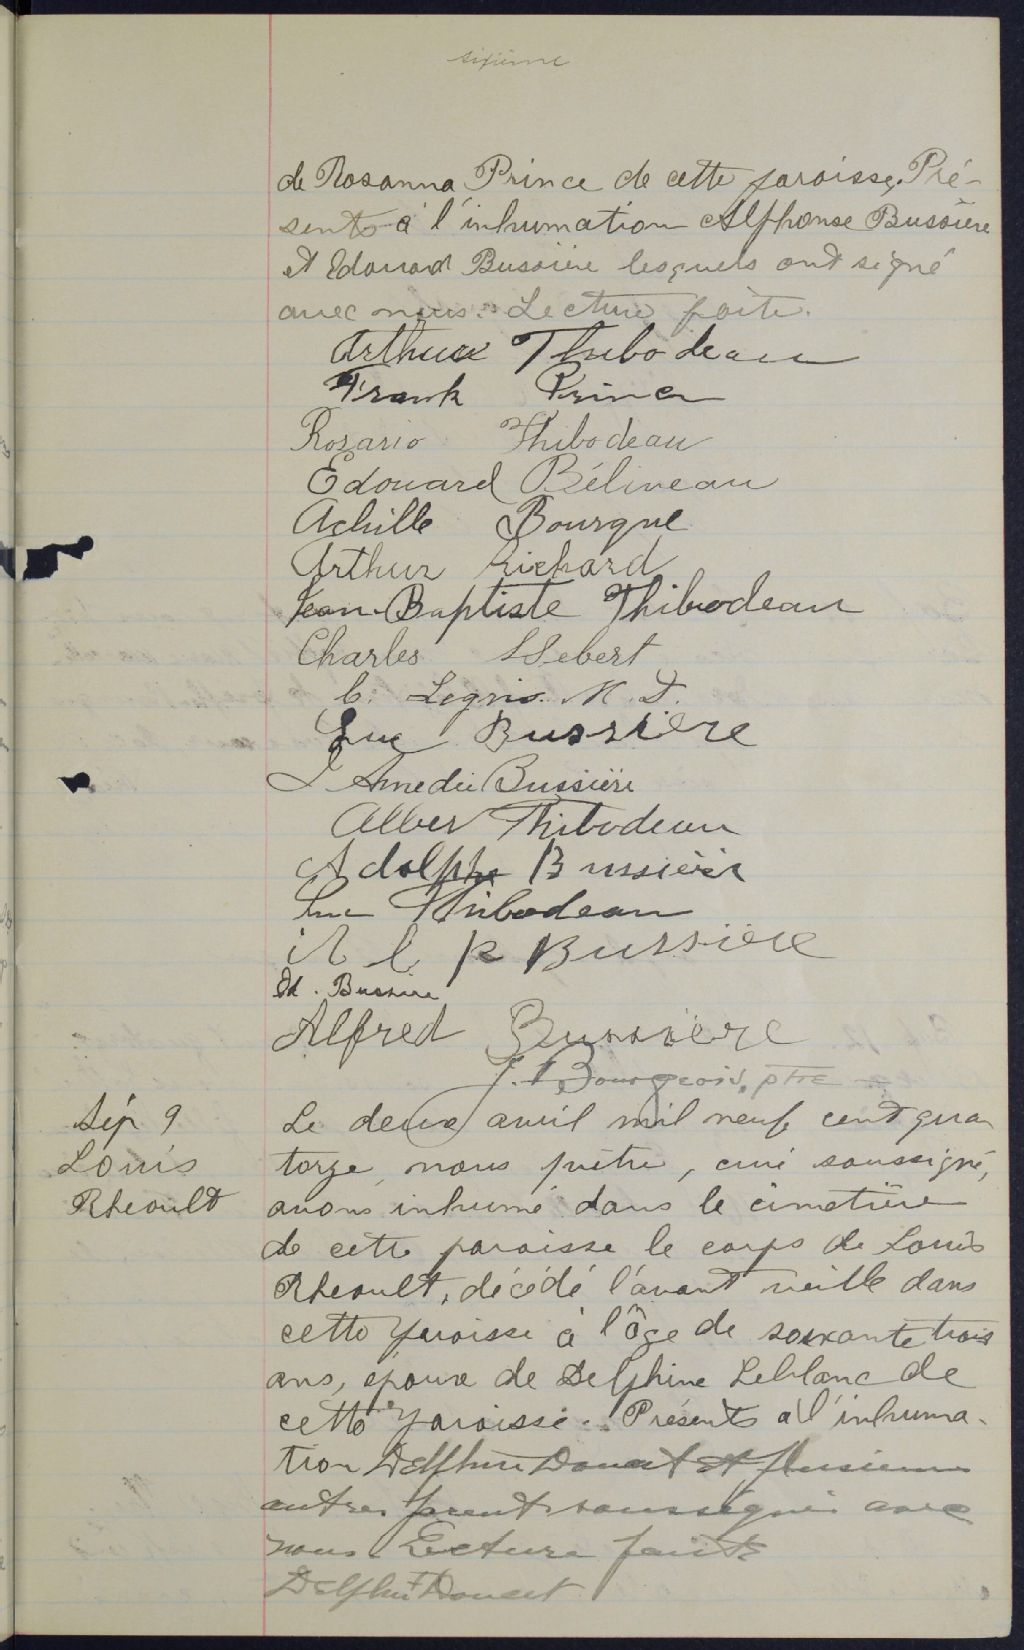 sixième
de Rosanna Prince de cette paroisse. Pré-
sents à l'inhumation Alphonse Bussière
et Edouard Bussière lesquels ont signé
avec nous. Lecture faite.
Arthur Thibodeau
Frank Prince
Rosario Thibodeau
Edouard Béliveau
Achille Bourque
Arthur Richard
Jean-Baptiste Thibodeau
Charles Hebert
C. Legris M. D.
Luc Bussière
J Amedée Bussière
Alber Thibodeau
Adolphe Bussière
Luc Thibodeau
Bussière
Ed. Bussière
Alfred Bussière
J. Bourgeois, ptre
Sép 9
Louis
Rheault
Le deux avril mil neuf cent qua
torze, nous prêtre, curé soussigné,
avons inhumé dans le cimetière
de cette paroisse le corps de Louis
Rheault, décédé l'avant veille dans
cette paroisse à l'âge de soixante trois
ans, époux de Delphine Leblanc de
cette paroisse. Présents à l'inhuma-
tion Delphis Doucet et plusieurs
autres parents soussignés avec
nous Lecture faite
Delphis Doucet